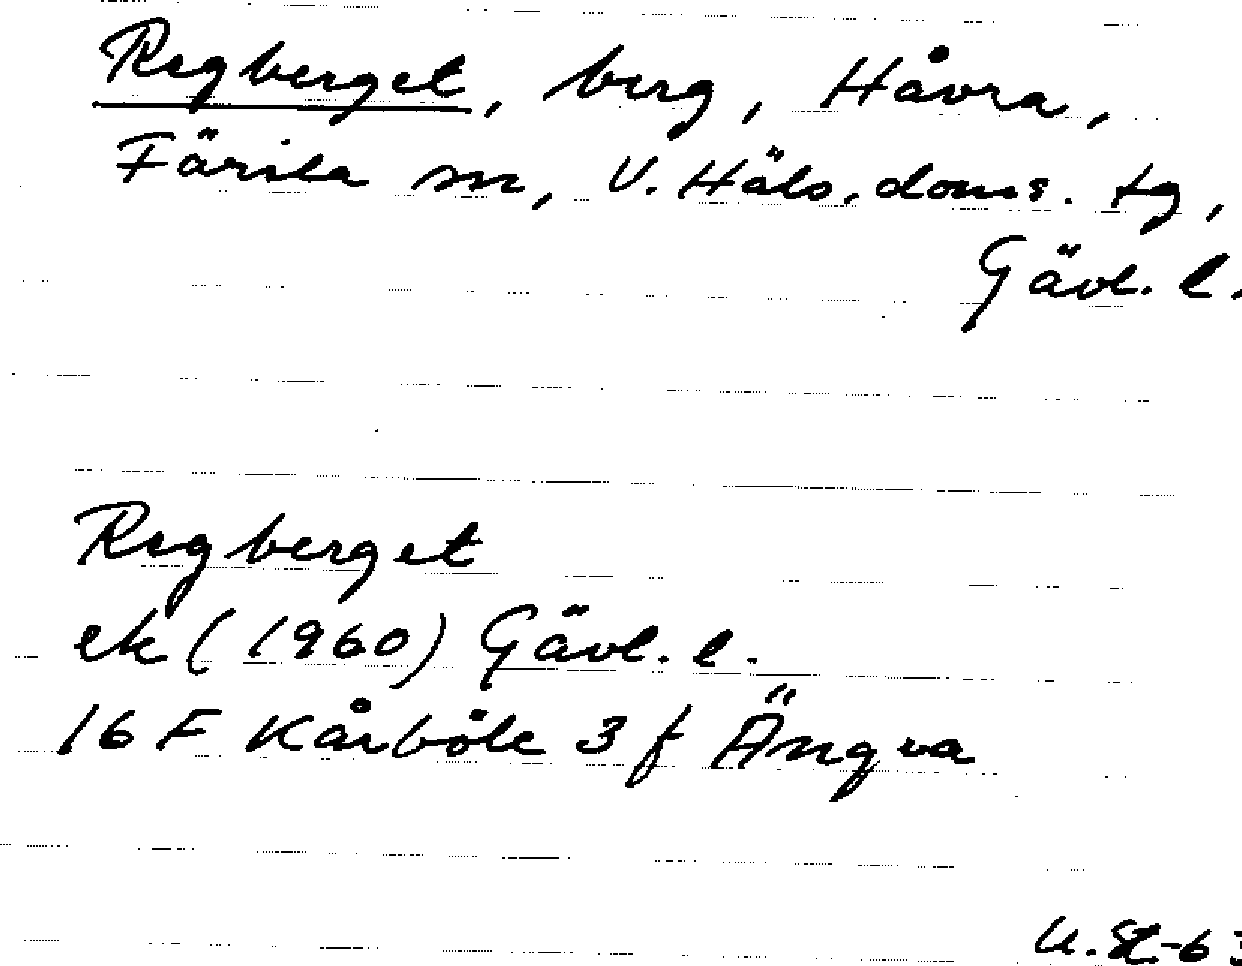 Regberget, berg, Håvra,
Färila sn, V. Häls. doms. tg,
Gävl. l.
Regberget
ek (1960) Gävl. l.
16 F Kårböle 3 f Ängra
U. St. -63